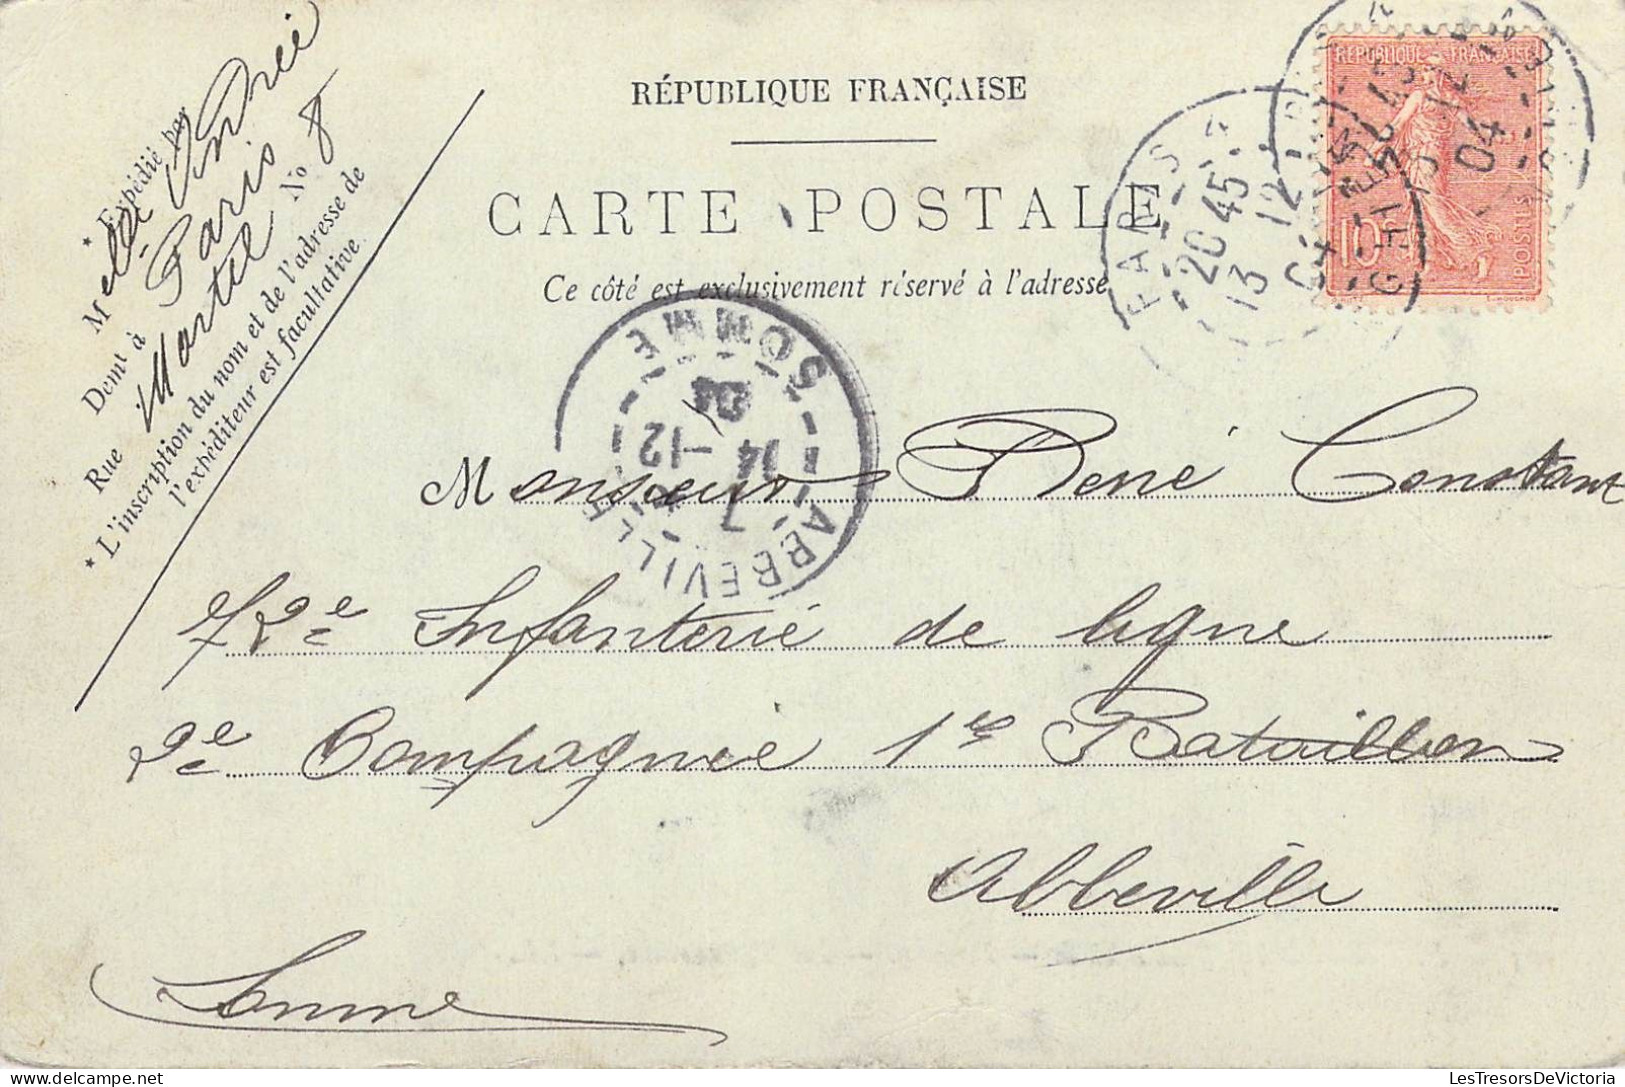 RÉPUBLIQUE FRANÇAISE
CARTE POSTALE
Ce côté est exclusivement réservé à l'adresse
* Expédié par
Melle Andrée
Demt à Paris
Rue Martel No 8
* L'inscription du nom et de l'adresse de
l'expéditeur est facultative.
REPUBLIQUE FRANÇAISE
10c
POSTES
PARIS
20 45
13 12
04
ABBEVILLE
7
14 -12
04
SOMME
Monsieur René Constant
72e Infanterie de ligne
2e Compagnie 1er Bataillon
Abbeville
Somme
LesTresorsDeVictoria